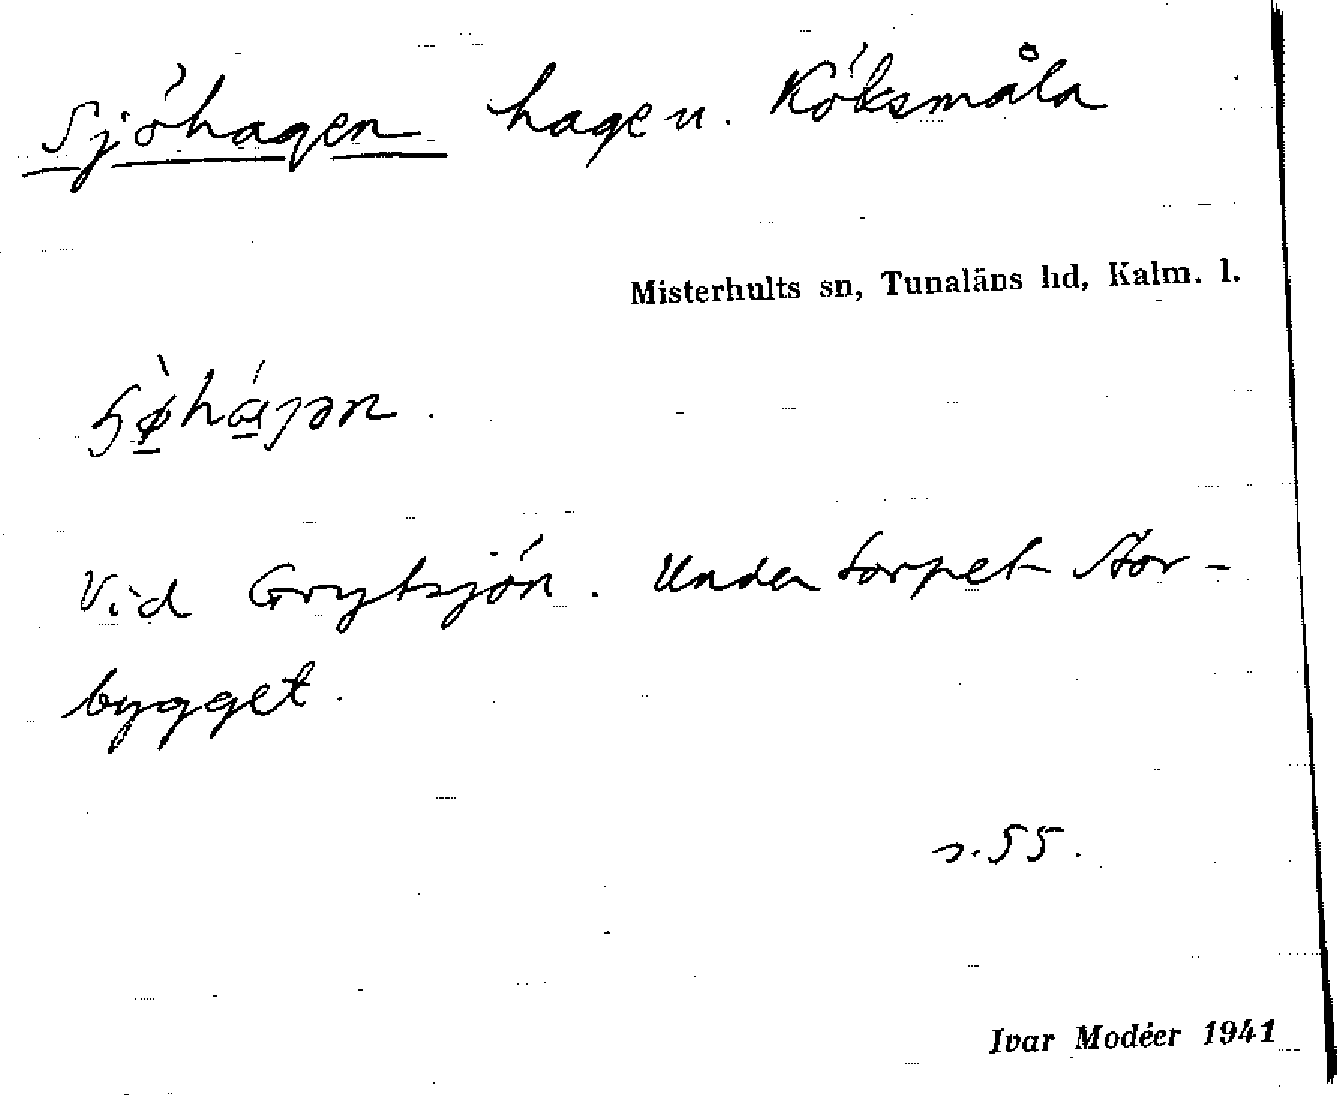 Sjöhagen hage u. Köksmåla
Misterhults sn, Tunaläns hd, Kalm. l.
Vid Grytsjön. Under torpet Stor-
bygget.
s. 55.
Ivar Modéer 1941